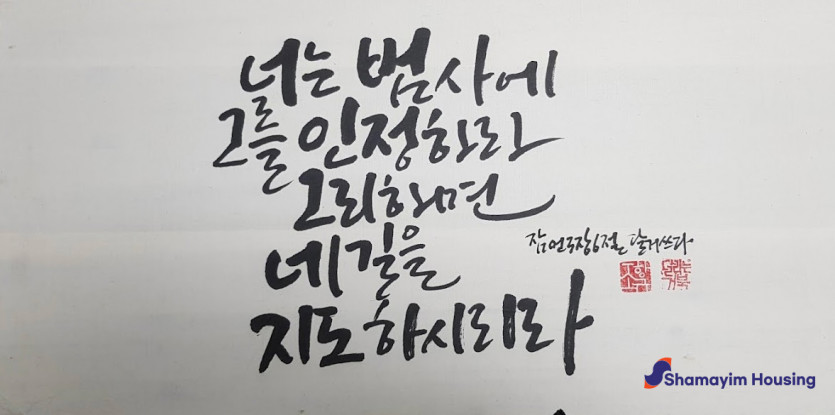 너는 범사에
그를 인정하라
그리하면
네 길을
지도하시리라
잠언 3장 6절
Shamayim Housing